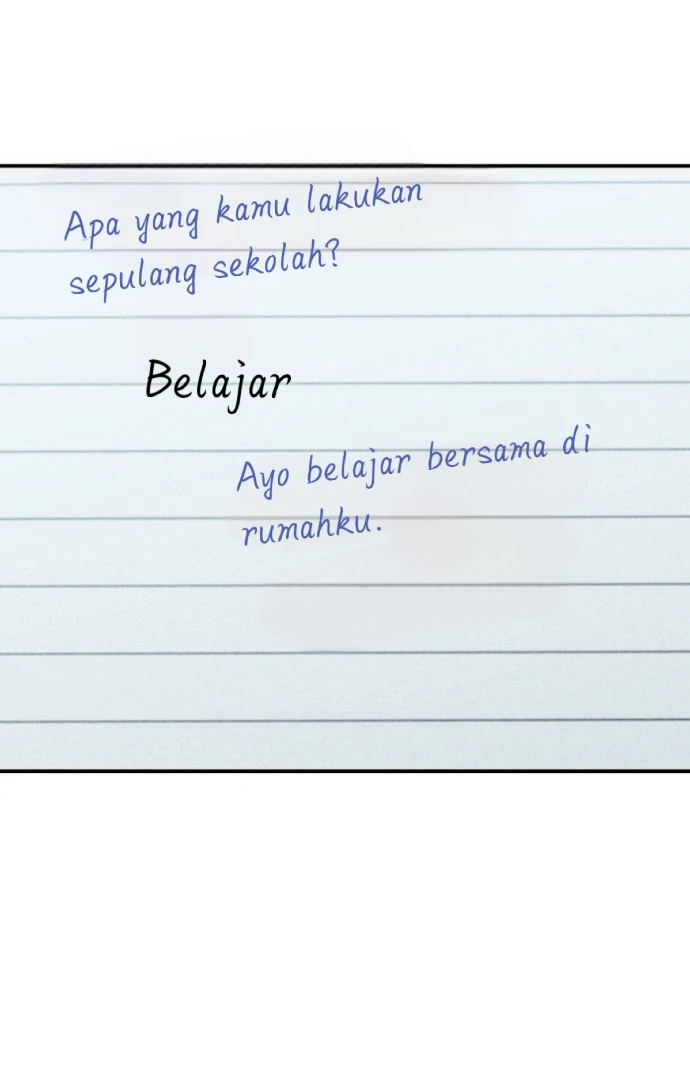 Apa yang kamu lakukan
sepulang sekolah?
Belajar
Ayo belajar bersama di
rumahku.